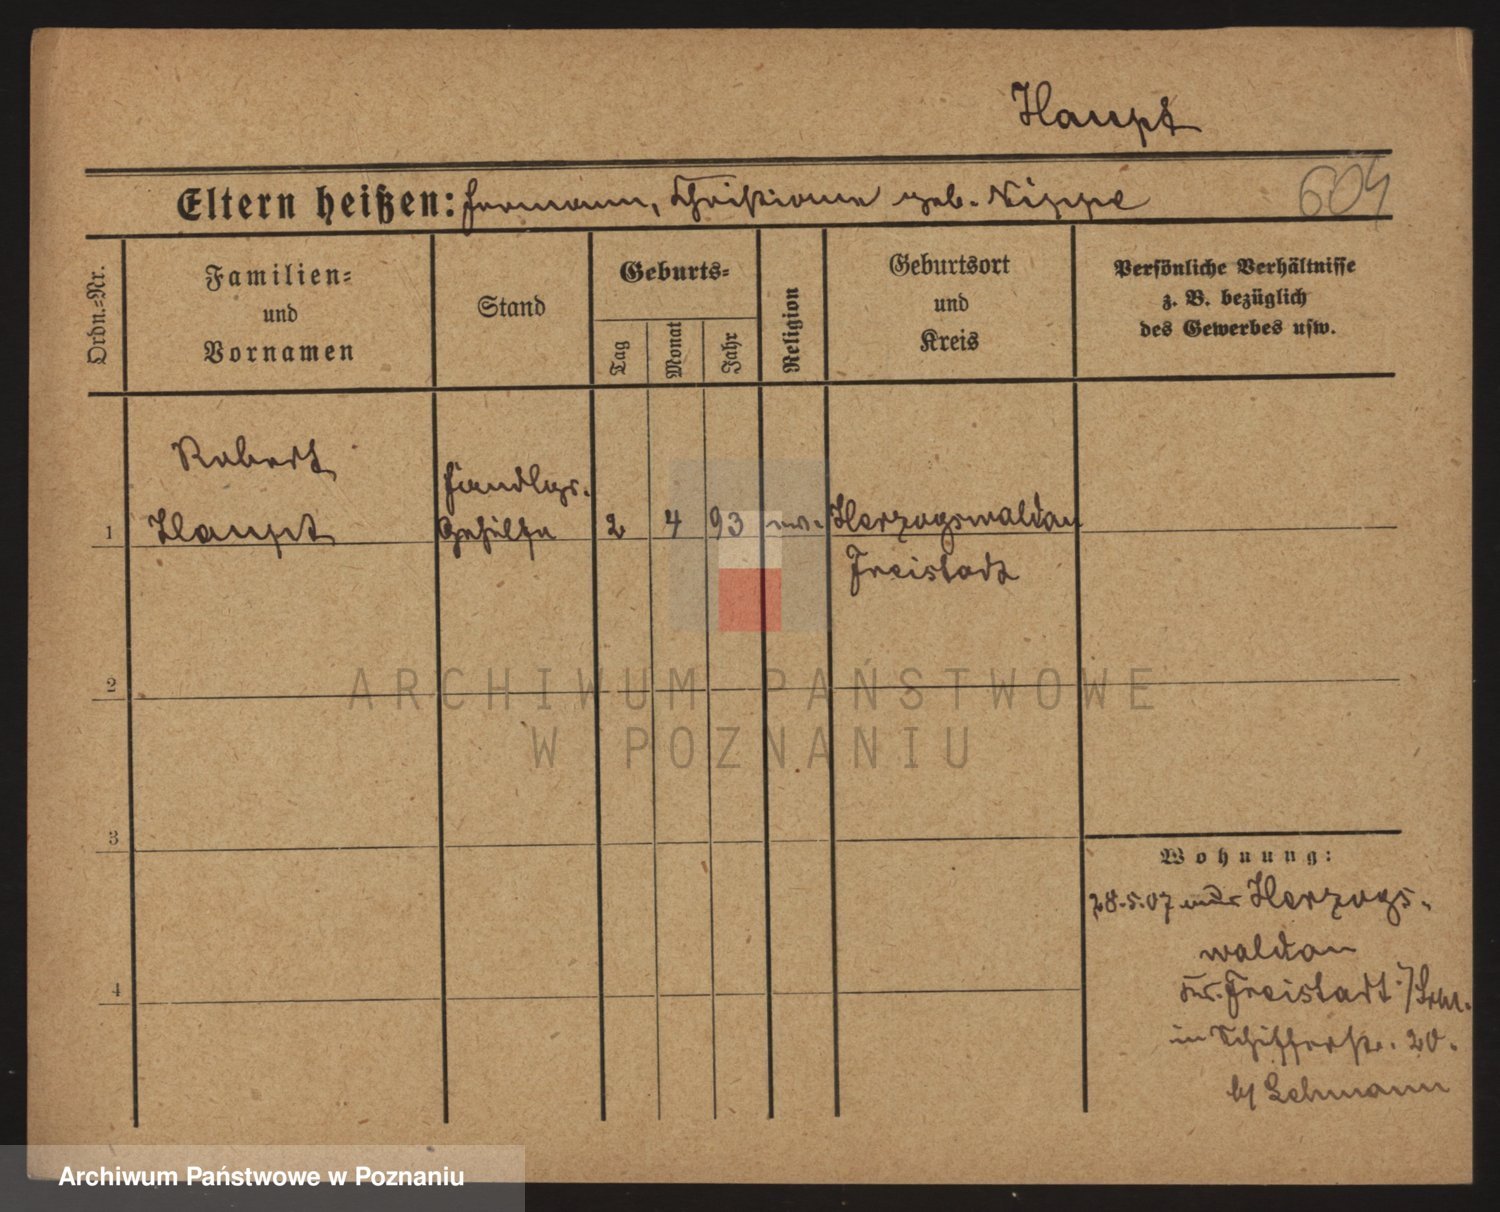 Haupt
Eltern heißen: Hermann, Christiane geb. Nippe
604
Ordn.-Nr.
Familien-
und
Vornamen
Stand
Geburts-
Tag
Monat
Jahr
Religion
Geburtsort
und
Kreis
Persönliche Verhältnisse
z. B. bezüglich
des Gewerbes usw.
Robert
Haupt
Handlgs.
Gehilfe
1
2 4 93 ev. Herzogswaldau
Freistadt
2
ARCHIWUM PAŃSTWOWE
W POZNANIU
3
4
Wohnung:
28.5.07 aus Herzogs-
waldau
Kr. Freistadt i/Schl.
in Schifferstr. 20.
b/ Lehmann
Archiwum Państwowe w Poznaniu